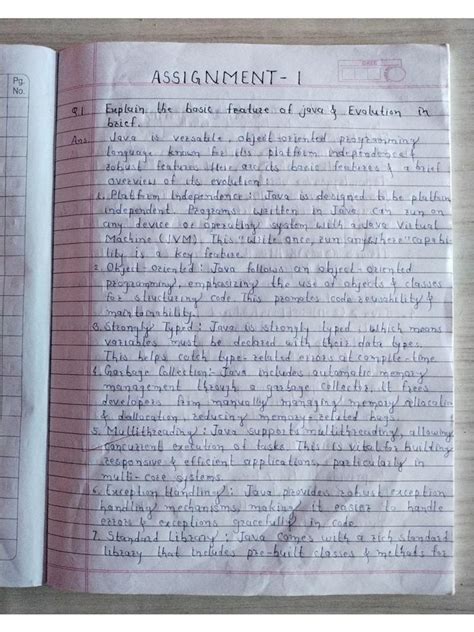 Pg.
No.
DATE
ASSIGNMENT - 1
Q.1 Explain the basic feature of java & Evolution in
brief.
Ans. Java is versable, object-oriented programming
language known for its platform independence &
robust features. Here are its basic features & a brief
overview of its evolution:
1. Platform Independence: Java is designed to be platform
independent. Programs written in Java can run on
any device or operating system with a Java Virtual
Machine (JVM). This "write once, run anywhere" capabi-
lity is a key feature.
2. Object-oriented: Java follows an object-oriented
programming, emphasizing the use of objects & classes
for structuring code. This promotes code reusability &
maintainability.
3. Strongly Typed: Java is strongly typed, which means
variables must be declared with their data types.
This helps catch type-related errors at compile-time.
4. Garbage Collection:- Java includes automatic memory
management through a garbage collector, it frees
developers from manually managing memory allocation
& dallocation, reducing memory-related bugs.
5. Multithreading: Java supports multithreading, allowing
concurrent execution of tasks. This is vital for building
responsive & efficient applications, particularly in
multi-core systems.
6. Exception Handling: Java provides robust exception
handling mechanisms, making it easier to handle
errors & exceptions gracefully in code.
7. Standard Library: Java comes with a rich standard
library that includes pre-built classes & methods for